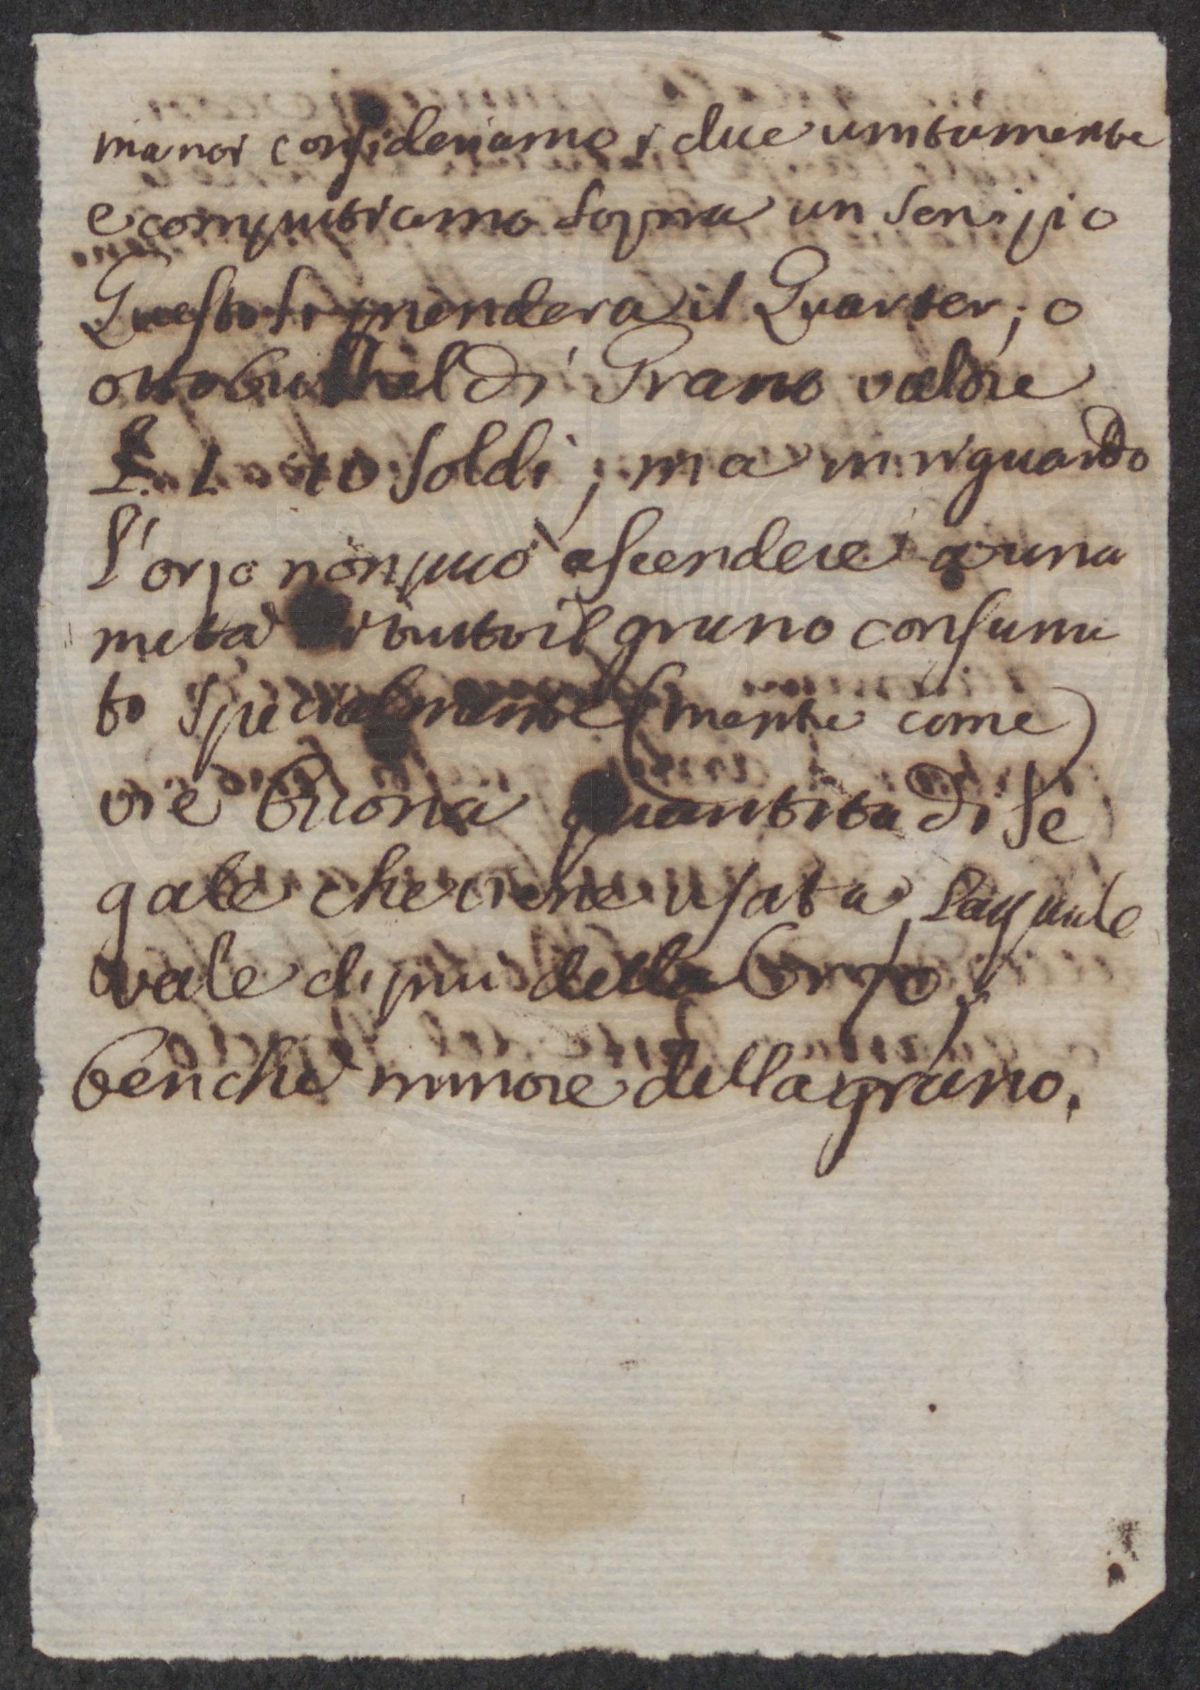 ma noi consideriamo i due unitamente
e computiamo sopra un
Questo si prendera il Quarter, o
otto bushel di Grano valore
£. 1. 10 soldi; ma in riguardo
l'orzo non puo ascendere a una
meta di tutto il grano consuma
to specialmente (mente come)
vi è buona quantita di se
gale che viene usata, la quale
vale di piu della l'orzo,
benche minore della grano.